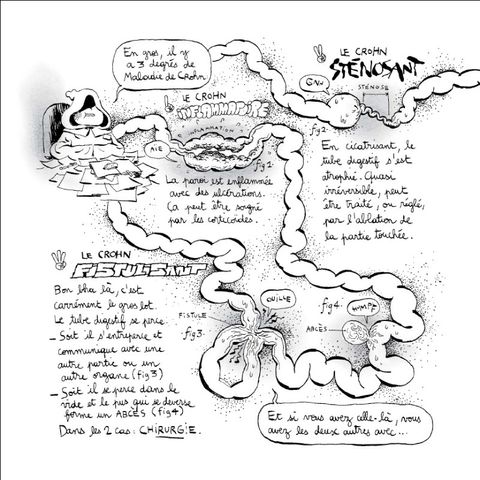 En gros, il y
a 3 degrés de
Maladie de Crohn
LE CROHN
INFLAMMATOIRE
INFLAMMATION
AÏE
fig 1.
La paroi est enflammée
avec des ulcérations.
Ça peut être soigné
par les corticoïdes.
LE CROHN
STÉNOSANT
STÉNOSE
GNN
fig 2.
En cicatrisant, le
tube digestif s'est
atrophié. Quasi
irréversible, peut
être traité, ou réglé,
par l'ablation de
la partie touchée.
LE CROHN
FISTULISANT
Bon bha là, c'est
carrément le gros lot.
Le tube digestif se perce.
— Soit il s'entreperce et
communique avec une
autre partie ou un
autre organe (fig 3)
— Soit il se perce dans le
vide et le pus qui se déverse
forme un ABCÈS (fig 4)
Dans les 2 cas: CHIRURGIE.
FISTULE
fig 3.
OUILLE
fig 4.
HMPF
ABCÈS
Et si vous avez celle-là, vous
avez les deux autres avec...